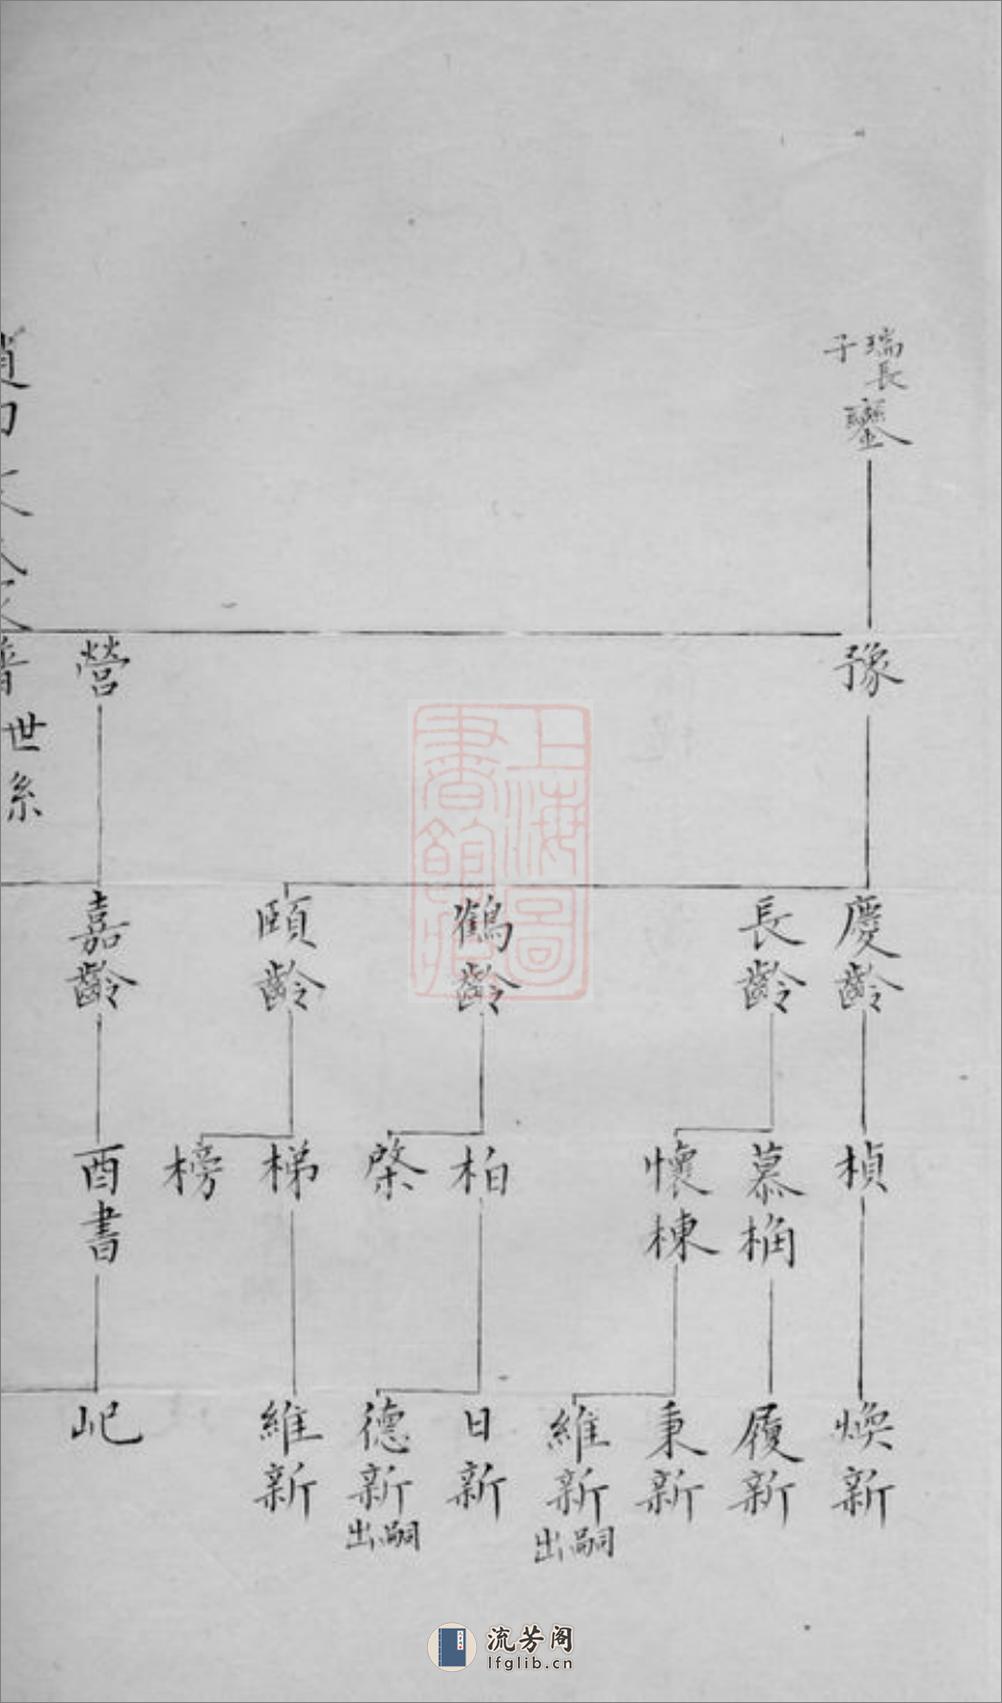 瑞長子
鑾
豫
營
慶齡
長齡
鶴齡
頤齡
嘉齡
楨
慕桷
懷棟
柏
棨
梯
榜
酉書
煥新
履新
秉新
維新出嗣
日新
德新出嗣
維新
屺
世系
上海圖書館藏
流芳阁
lfglib.cn